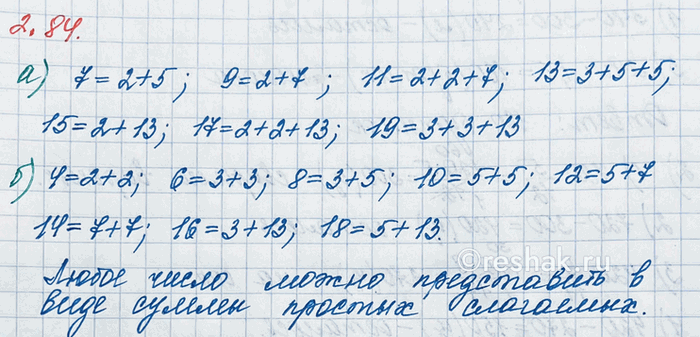 2.84.
а) 7=2+5; 9=2+7; 11=2+2+7; 13=3+5+5;
15=2+13; 17=2+2+13; 19=3+3+13
б) 4=2+2; 6=3+3; 8=3+5; 10=5+5; 12=5+7
14=7+7; 16=3+13; 18=5+13.
reshak.ru
Любое число можно представить в
виде суммы простых слагаемых.